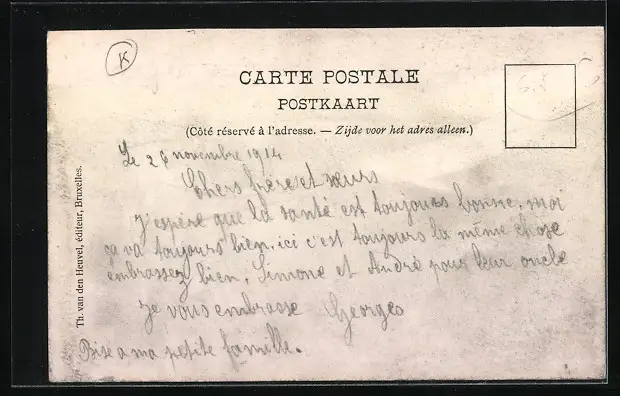 K
CARTE POSTALE
POSTKAART
(Côté réservé à l'adresse. — Zijde voor het adres alleen.)
Th. van den Heuvel, éditeur, Bruxelles.
Le 26 novembre 1914
Chers frère et sœurs
J'espère que la santé est toujours bonne, moi
ça va toujours bien, ici c'est toujours la même chose
embrassez bien, Simone et André pour leur oncle
je vous embrasse Georges
Bise a ma petite famille.